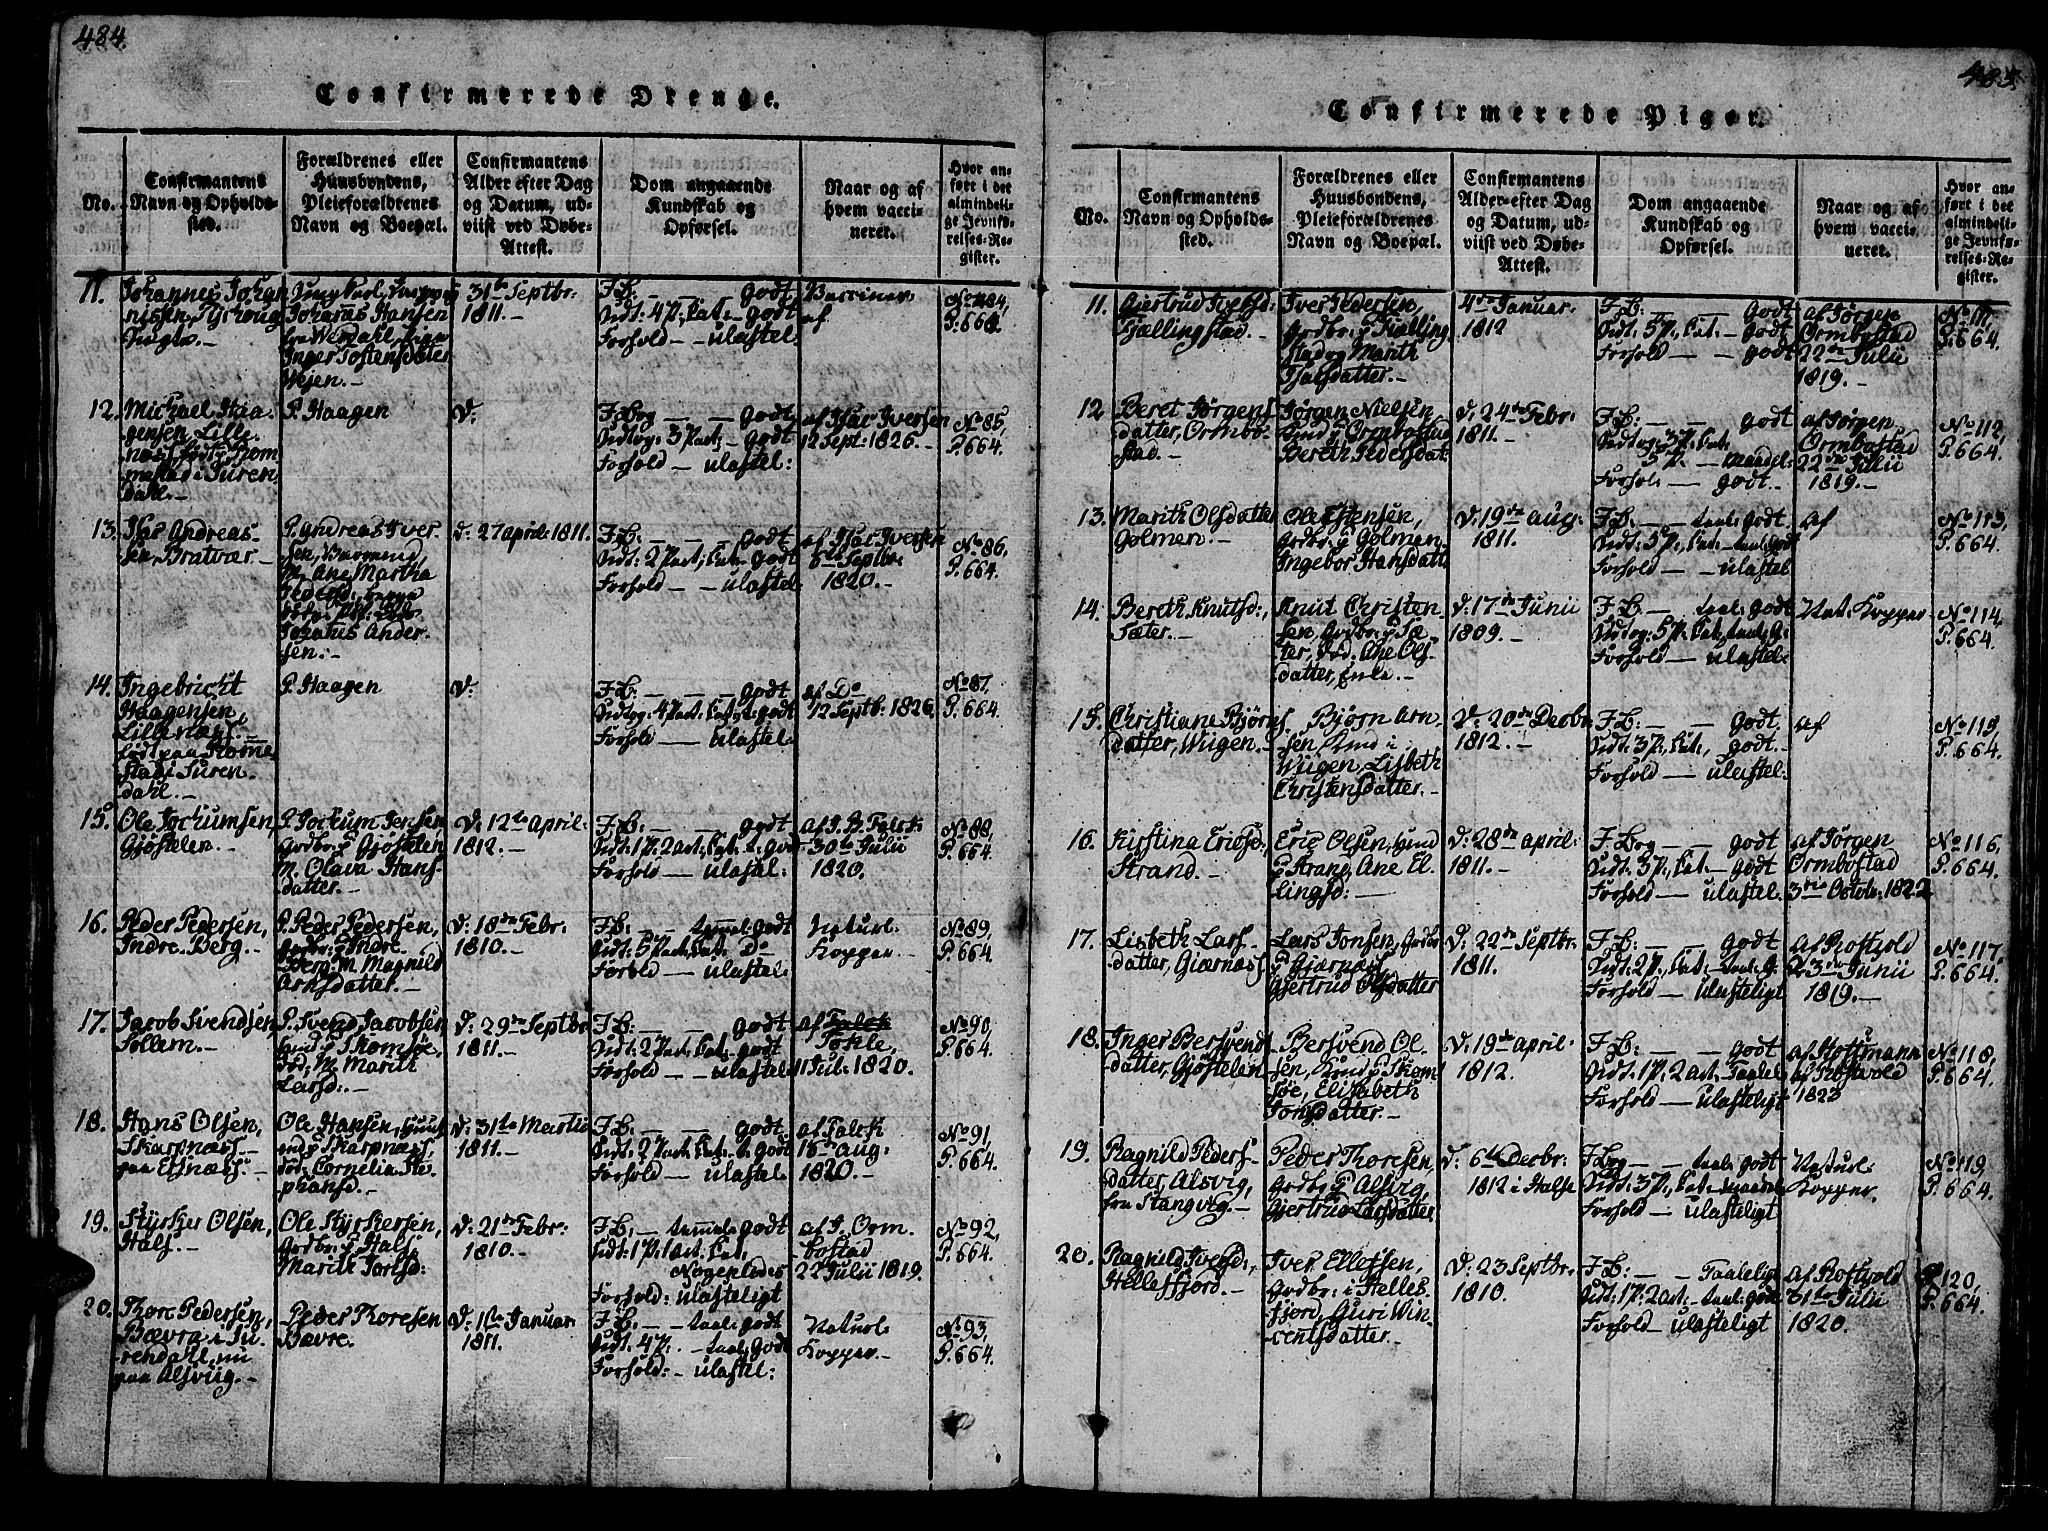 484.
Confirmerede Drenge.
No.
Confirmantens Navn og Opholdssted.
Forældrenes eller Huusbondens, Pleieforældrenes Navn og Boepæl.
Confirmantens Alder efter Dag og Datum, udviist ved Døbe-Attest.
Dom angaaende Kundskab og Opførsel.
Naar og af hvem vaccineret.
Hvor anført i det almindelige Jevnførelses-Register.
11.
Johannes Johannissen,
31te Septbr:
1811.–
F. B: — — godt
Vidt: 4 P: Cat: – godt
Forhold — ulastel:
Vaccineret
af
No 84,
P. 664.
Johannes Hansen
fra Werdahl,
Inger Tostensdatter
Wejen.–
12.
Michael Haagensen, Lillenæs, født
i Surendahl.–
P. Haagen
D:
F. Bog — — godt
Udtog: 3 Part: – godt
Forhold — ulastel:
af Isac Iversen
12 Sept: 1826.–
No 85,
P. 664.
13.
Isac Andreassen, Bratvær.–
P. Andreas Iversen,
M. Ane Martha
Johannes Andersen.–
d: 27 april: 1811.
F. B: — — godt
Vidt: 2 Part, Cat: – godt
Forhold — ulastel:
af Isac Iversen
6te Septbr:
1820.–
No 86,
P. 664.
14.
Ingebricht
Haagensen,
Lillenæs.–
født paa
i Surendahl.–
P. Haagen
D:
F. B: — — godt
Udtog: 4 Part: Cat: t: godt
Forhold — ulastel:
af Do
12 Septb: 1826.
No 87,
P. 664.
15.
Ole Jochumsen
Gjøstelen.–
P. Jochum Jensen,
Grdbr: p Gjøstelen
M. Olava Hansdatter.–
D: 12te April:
1812.–
F. B: — — godt
Vidt: 1 P. 2 act: Cat: t: godt
Forhold — ulastel:
af J. B. Falck
30te Julii
1820.
No 88,
P. 664.
16.
Peder Pedersen,
Indre Berg.–
P. Peder Pedersen,
Grdbr: p Indre
Berg. M. Magnild
Arnsdatter.–
D: 18de Febr:
1810.–
F. B: — temmel: godt
Vidt: 5 Part, Cat: Do
Forhold — ulastel:
Naturl:
Kopper.–
No 89,
P. 664
17.
Jacob Svendsen
Sollem.–
P. Svend Jacobsen
død, M. Marith
Larsd:–
D: 29de Septbr:
1811.–
F. B: — — godt
Vidt: 2 Part, Cat: godt
Forhold — ulastel:
af Falck
Tohle,
11 Jul: 1820.
No 90,
P. 664.
18.
Hans Olsen,
Skarpnæss–
paa Edsnæss.–
Ole Hansen, Huusmd
p Skarpnæss,
død, Cornelia Stephansd.–
D: 31te Martii
1811.–
F. B: — — godt
Vidt: 2 Part, Cat: t: godt
Forhold — ulastel:
af Falck
18de Aug:
1820.–
No 91,
P. 664.
19.
Styrker Olsen,
Hals.–
Ole Styrkersen,
Grdbr: p Hals,
Marith Torlsd:
D: 21de Febr:
1810.–
F. B: – temmel: godt
Vidt: 1 P: 1 act: Cat:
Nogenledes
Forhold: ulasteligt
af J. Ormbostad
22 Julii 1819.
No 92,
P. 664.
20.
Thore Pedersen,
Bævra i Surendahl, nu
paa Alsviig.–
Peder Thoresen
Bævre.
D: 1te Januar:
1811.
F. B: — taal: godt
Vidt: 4 P: – taal: godt
Forhold: – ulastel:
Naturl:
Kopper.–
No 93,
P. 664.
485.
Confirmerede Piger.
No.
Confirmantens Navn og Opholdssted.
Forældrenes eller Huusbondens, Pleieforældrenes Navn og Boepæl.
Confirmantens Alder efter Dag og Datum, udviist ved Døbe-Attest.
Dom angaaende Kundskab og Opførsel.
Naar og af hvem vaccineret.
Hvor anført i det almindelige Jevnførelses-Register.
11.
Gjertrud Iversd:
Fjællingstad.–
Iver Pedersen,
Grdbr: p Fjællingstad
og Marith
4de Januar:
1812
F. B: — — godt
Vidt: 5 P:, Cat: – godt
Forhold — — godt
af Jørgen
Ormbostad
22de Julii
1819.–
No 111,
P. 664.
12
Beret Jørgensdatter, Ormbostad.–
Jørgen Nielsen
Ormbostad
Bereth Pedersdat:
D: 24de Febr:
1811.–
F. B: — — godt
Udtog: 3 P: Cat:
5 P. – maadel:
Forhold — godt.–
af Jørgen
Ormbostad
22de Julii
1819.–
No 112,
P. 664.
13.
Marith Olsdatter
Golmen.–
Ole Estensen,
Grdbr: p Golmen,
Ingebor Hansdatt:
D: 19de Aug:
1811.–
F. B: — taal: godt
Vidt: 5 P:, Cat: – taal: godt
Forhold — ulastel:
af
No 113,
P. 664.
14.
Bereth Knutsd:,
Sæter.–
Knut Christensen, Grdbr: p Sæter, død. Ane Olsdatter, Enke.–
D: 17de Junii
1809.–
F. B: — taal: godt
Udtog: 5 P: Cat: taal: g:
Forhold — ulastel:
Nat: Kopper
No 114,
P. 664.
15.
Christiane Bjørnsdatter, Wiigen.–
Bjørn Arnsen,
i
Wiigen, Lisbeth
Christensdatter.–
D: 20de Decbr:
1812.–
F. B: — — godt
Vidt: 3 P:, Cat: godt.–
Forhold — ulastel:
af
No 115,
P. 664.
16.
Kirstina Ericsd:
Strand.–
Eric Olsen, Huusmd
p Strand, Ane Ellingsd:–
D: 28de april:
1811.–
F. Bog — — godt
Vidt: 3 P:, Cat – godt
Forhold — ulastel:
af Jørgen
Ormbostad
3die Octob: 1822
No 116,
P. 664.
17.
Lisbeth Larsdatter, Gjærnæss
Lars Jonsen, Grdbr:
p Gjærnæss,
Gjertrud Olsdatter
D: 22de Septbr:
1811.
F. B: — — godt
Vidt: 2 P:, Cat – taal: g:
Forhold — ulasteligt
af Rostvold
23de Junii
1819.–
No 117,
P. 664.
18.
Inger Bersvendsdatter, Gjøstelen
Bersvend Olsen,
Elisabeth
Jonsdatter.–
D: 19de april:
1812.
F. B: — — godt
Vidt: 1 P:, 2 act: Taalel:
Forhold — ulasteligt
af Hoffmann
af Rostvold
1823
No 118,
P. 664.
19.
Ragnild Pedersdatter, Alsvig,
fra Stangvig.–
Peder Thoresen,
Grdbr: p Alsvig,
Gjertrud Larsdatter
D: 6te Decbr:
1812 i Halse
F. Bog — taal: godt
Vidt: 3 P:, Cat: maadel:
Forhold — ulasteligt
Naturl:
Kopper.
No 119,
P. 664.
20.
Ragnild Iversd:,
Hellesfjord.–
Iver Ellefsen,
Grdbr: i Hellesfjord, Guri Wincentsdatter.–
D: 23 Septbr:
1810.
F. B: — — Taalelig
Vidt: 1 P: 2 act: – taal: godt
Forhold — ulasteligt
af Rostvold
31te Julii
1820.
No 120,
P. 664.